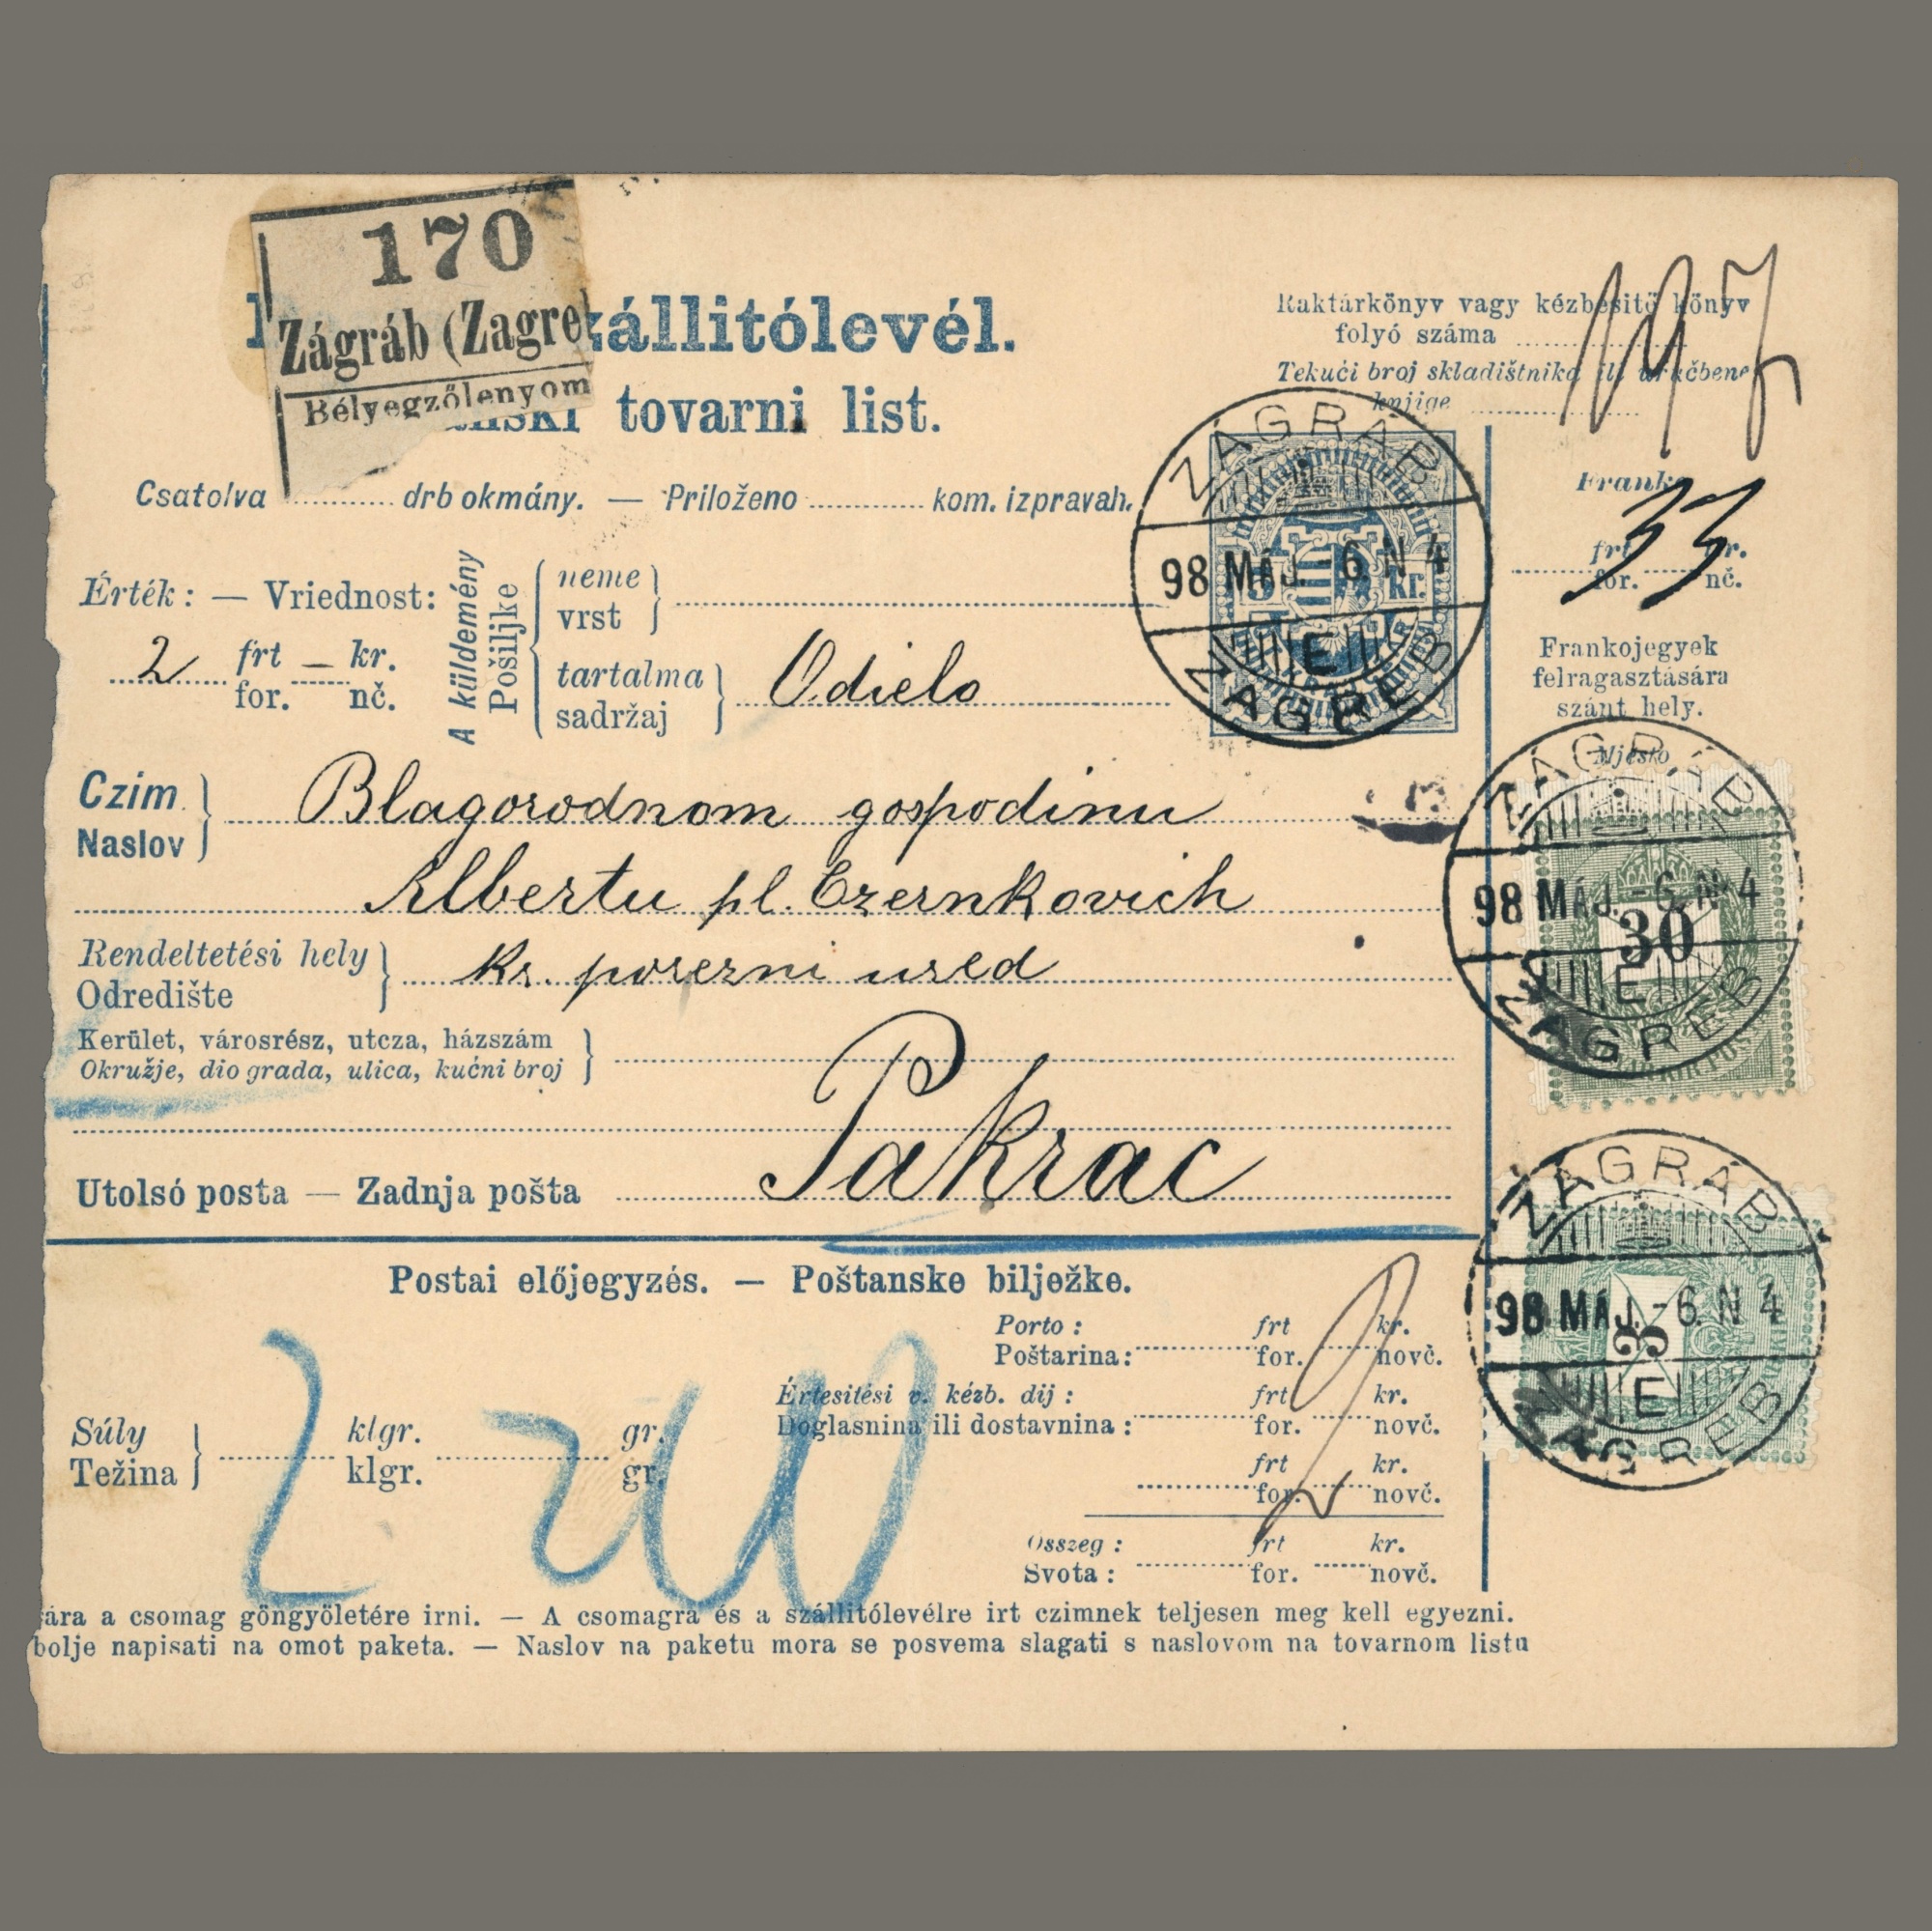 170
Zágráb (Zagre
Bélyegzőlenyom
zállitólevél.
tovarni list.
Raktárkönyv vagy kézbesitő könyv
folyó száma
Tekući broj skladištnika ili uručbene
knjige
Csatolva drb okmány. — Priloženo kom. izpravah.
Franko
33
frt kr.
for. nč.
Érték: — Vriednost:
2 frt — kr.
for. nč.
A küldemény
Pošiljke
neme
vrst
tartalma
sadržaj
Odielo
5 kr.
ZÁGRÁB
98 MÁJ. - 6. N 4
E
ZAGREB
Frankojegyek
felragasztására
szánt hely.
Mjesto
Czim
Naslov
Blagorodnom gospodinu
Albertu pl. Czernkovich
Rendeltetési hely
Odredište
kr. porezni ured
Kerület, városrész, utcza, házszám
Okružje, dio grada, ulica, kućni broj
Utolsó posta — Zadnja pošta
Pakrac
ZÁGRÁB
98 MÁJ. - 6. N 4
30
E
ZAGREB
ZÁGRÁB
98 MÁJ. - 6. N 4
3
E
ZAGREB
Postai előjegyzés. — Poštanske bilježke.
Porto : frt kr.
Poštarina: for. novč.
Értesitési v. kézb. dij : frt kr.
Doglasnina ili dostavnina : for. novč.
frt kr.
for. novč.
Összeg : frt kr.
Svota : for. novč.
Súly klgr. gr.
Težina klgr. gr.
2
ára a csomag göngyöletére irni. — A csomagra és a szállitólevélre irt czimnek teljesen meg kell egyezni.
bolje napisati na omot paketa. — Naslov na paketu mora se posvema slagati s naslovom na tovarnom listu